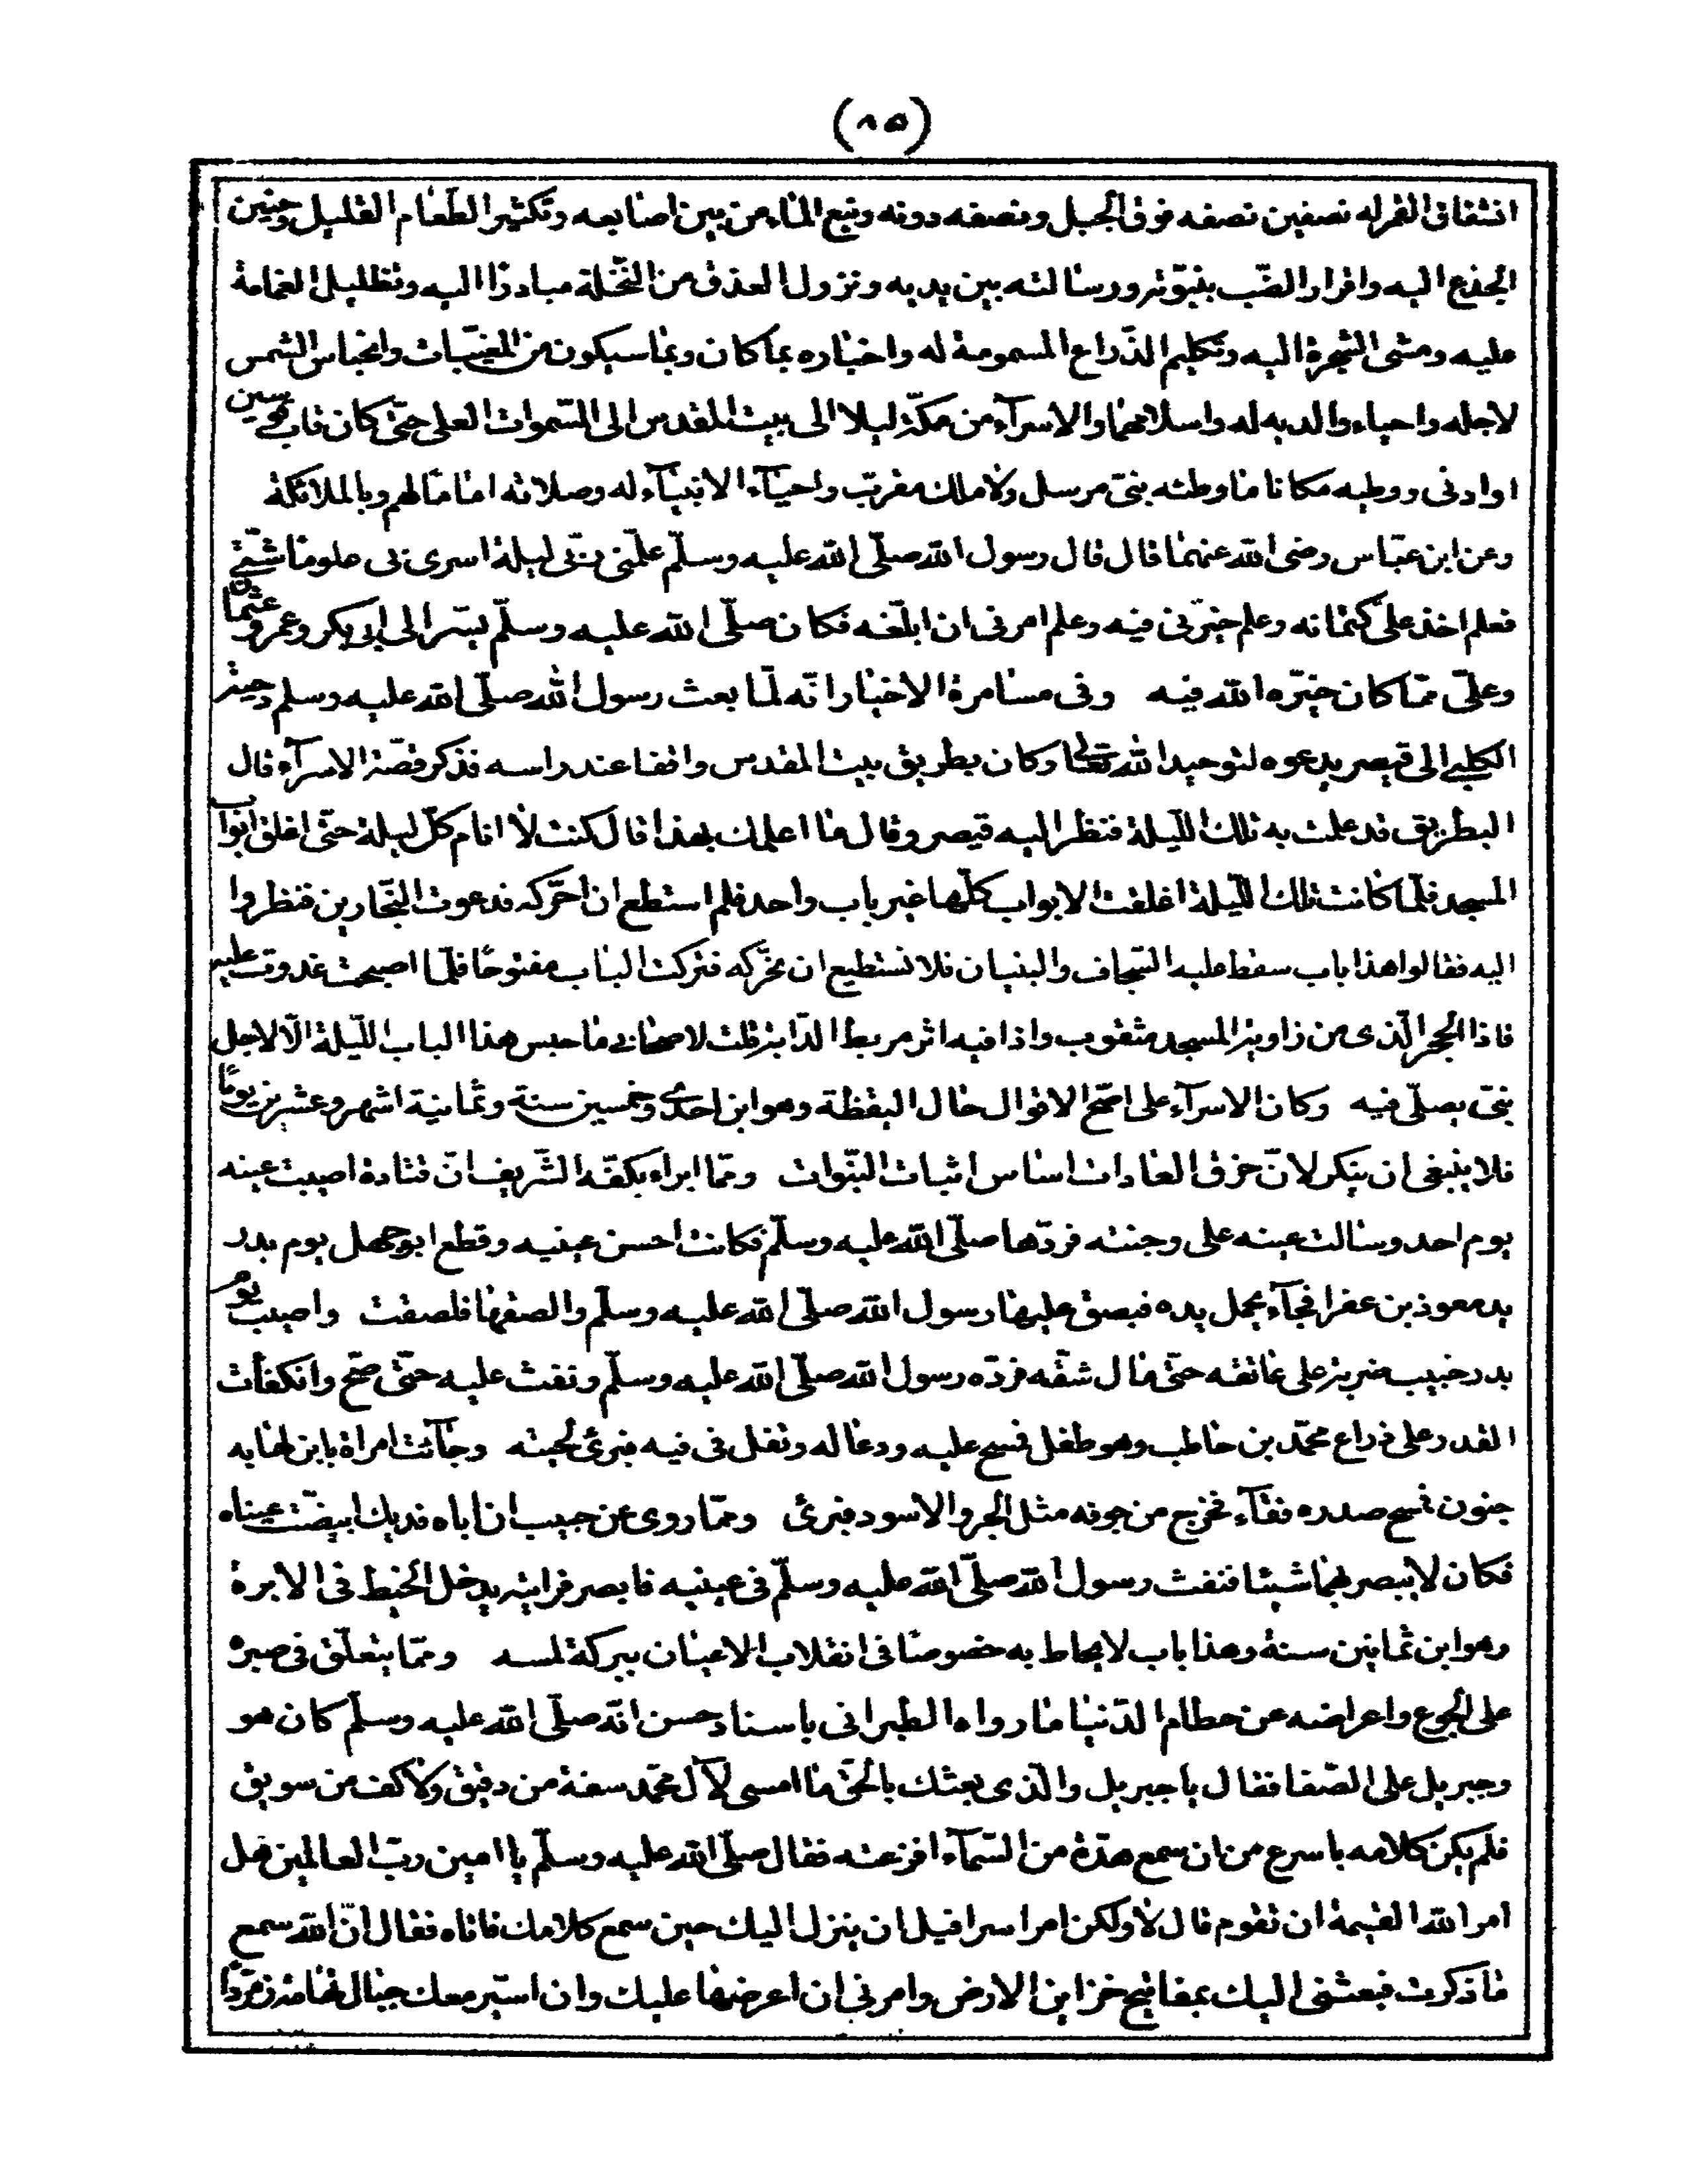 (٨٥)
انشقاق القمر له نصفين نصفه فوق الجبل ونصفه دونه ونبع الماء من بين اصابعه وتكثير الطعام القليل وحنين
الجذع اليه واقرار الضّب بنبوّته ورسالته بين يديه ونزول العذق من النّخلة مبادرًا اليه وتظليل الغمامة
عليه ومشى الشجرة اليه وتكليم الذّراع المسمومة له واخباره بما كان وبما سيكون من المغيّبات وانحباس الشمس
لاجله واحياء والديه له واسلامهما والاسرآء من مكّة ليلا الى بيت المقدس الى السّموات العلى حتّى كان قاب قوسين
او ادنى ووطيه مكانا ما وطئه نبىّ مرسل ولا ملك مقرّب واحيآء الانبيآء له وصلاته اماما لهم وبالملائكة
وعن ابن عبّاس رضى الله عنهما قال قال رسول الله صلّى الله عليه وسلّم علّمنى ربّى ليلة اسرى بى علوما شتّى
فعلم اخذ علىّ كتمانه وعلم خيّرنى فيه وعلم امرنى ان ابلّغه فكان صلّى الله عليه وسلّم يسرّ الى ابى بكر وعمر وعثمان
وعلىّ ممّا كان خيّره الله فيه وفى مسامرة الاخبار انّه لمّا بعث رسول الله صلّى الله عليه وسلم دحية
الكلبى الى قيصر يدعوه لتوحيد الله تعالى وكان بطريق بيت المقدس واقفا عند راسه فذكر قصّة الاسرآء قال
البطريق قد علمت به تلك اللّيلة فنظر اليه قيصر وقال ما اعلمك بهذا قال كنت لا انام كلّ ليلة حتّى اغلق ابواب
المسجد فلمّا كانت تلك اللّيلة اغلقت الابواب كلّها غير باب واحد فلم استطع ان احرّكه فدعوت النّجارين فنظروا
اليه فقالوا هذا باب سقط عليه النّجاف والبنيان فلا نستطيع ان نحرّكه فتركت الباب مفتوحًا فلمّا اصبحت غدوت عليه
فاذا الحجر الّذى من زاوية المسجد مثقوب واذا فيه اثر مربط الدّابة فقلت لاصحابى ما حبس هذا الباب اللّيلة الّا لاجل
نبىّ يصلّى فيه وكان الاسرآء على اصحّ الاقوال حال اليقظة وهو ابن احدى وخمسين سنة وثمانية اشهر وعشرين يومًا
فلا ينبغى ان ينكر لانّ خرق العادات اساس اثبات النبّوات وممّا ابراه بكفّه الشّريف انّ قتادة اصيبت عينه
يوم احد وسالت عينه على وجنته فردّها صلّى الله عليه وسلّم فكانت احسن عينيه وقطع ابو جهل يوم بدر
يد معوذ بن عفرا فجآء يحمل يده فبصق عليها رسول الله صلّى الله عليه وسلّم والصقها فلصقت واصيب يوم
بدر خبيب ضربة على عاتقه حتّى مال شقّه فردّه رسول الله صلّى الله عليه وسلّم ونفث عليه حتّى صحّ وانكفأت
القدر على ذراع محمّد بن حاطب وهو طفل فمسح عليه ودعا له وتفل فى فيه فبرئ لحينه وجآئت امراة بابن لها به
جنون فمسح صدره فقآء فخرج من جوفه مثل الجرو الاسود فبرئ وممّا روى عن حبيب ان اباه فديك ابيضّت عيناه
فكان لا يبصر بهما شيئا فنفث رسول الله صلّى الله عليه وسلّم فى عينيه فابصر فرايته يدخل الخيط فى الابرة
وهو ابن ثمانين سنة وهذا باب لا يحاط به خصوصا فى انقلاب الاعيان ببركة لمسه وممّا يتعلّق فى صبره
على الجوع واعراضه عن حطام الدّنيا ما رواه الطبرانى باسناد حسن انّه صلّى الله عليه وسلّم كان هو
وجبريل على الصّفا فقال يا جبريل والّذى بعثك بالحقّ ما امسى لآل محمّد سفة من دقيق ولا كف من سويق
فلم يكن كلامه باسرع من ان سمع هدّة من السّمآء افزعته فقال صلّى الله عليه وسلّم يا امين ربّ العالمين هل
امر الله القيمة ان تقوم قال لا ولكن امر اسرافيل ان ينزل اليك حين سمع كلامك فاتاه فقال انّ الله سمع
ما ذكرت فبعثنى اليك بمفاتيح خزاين الارض وامرنى ان اعرضها عليك وان اسيّر معك جبال تهامة زمردًا